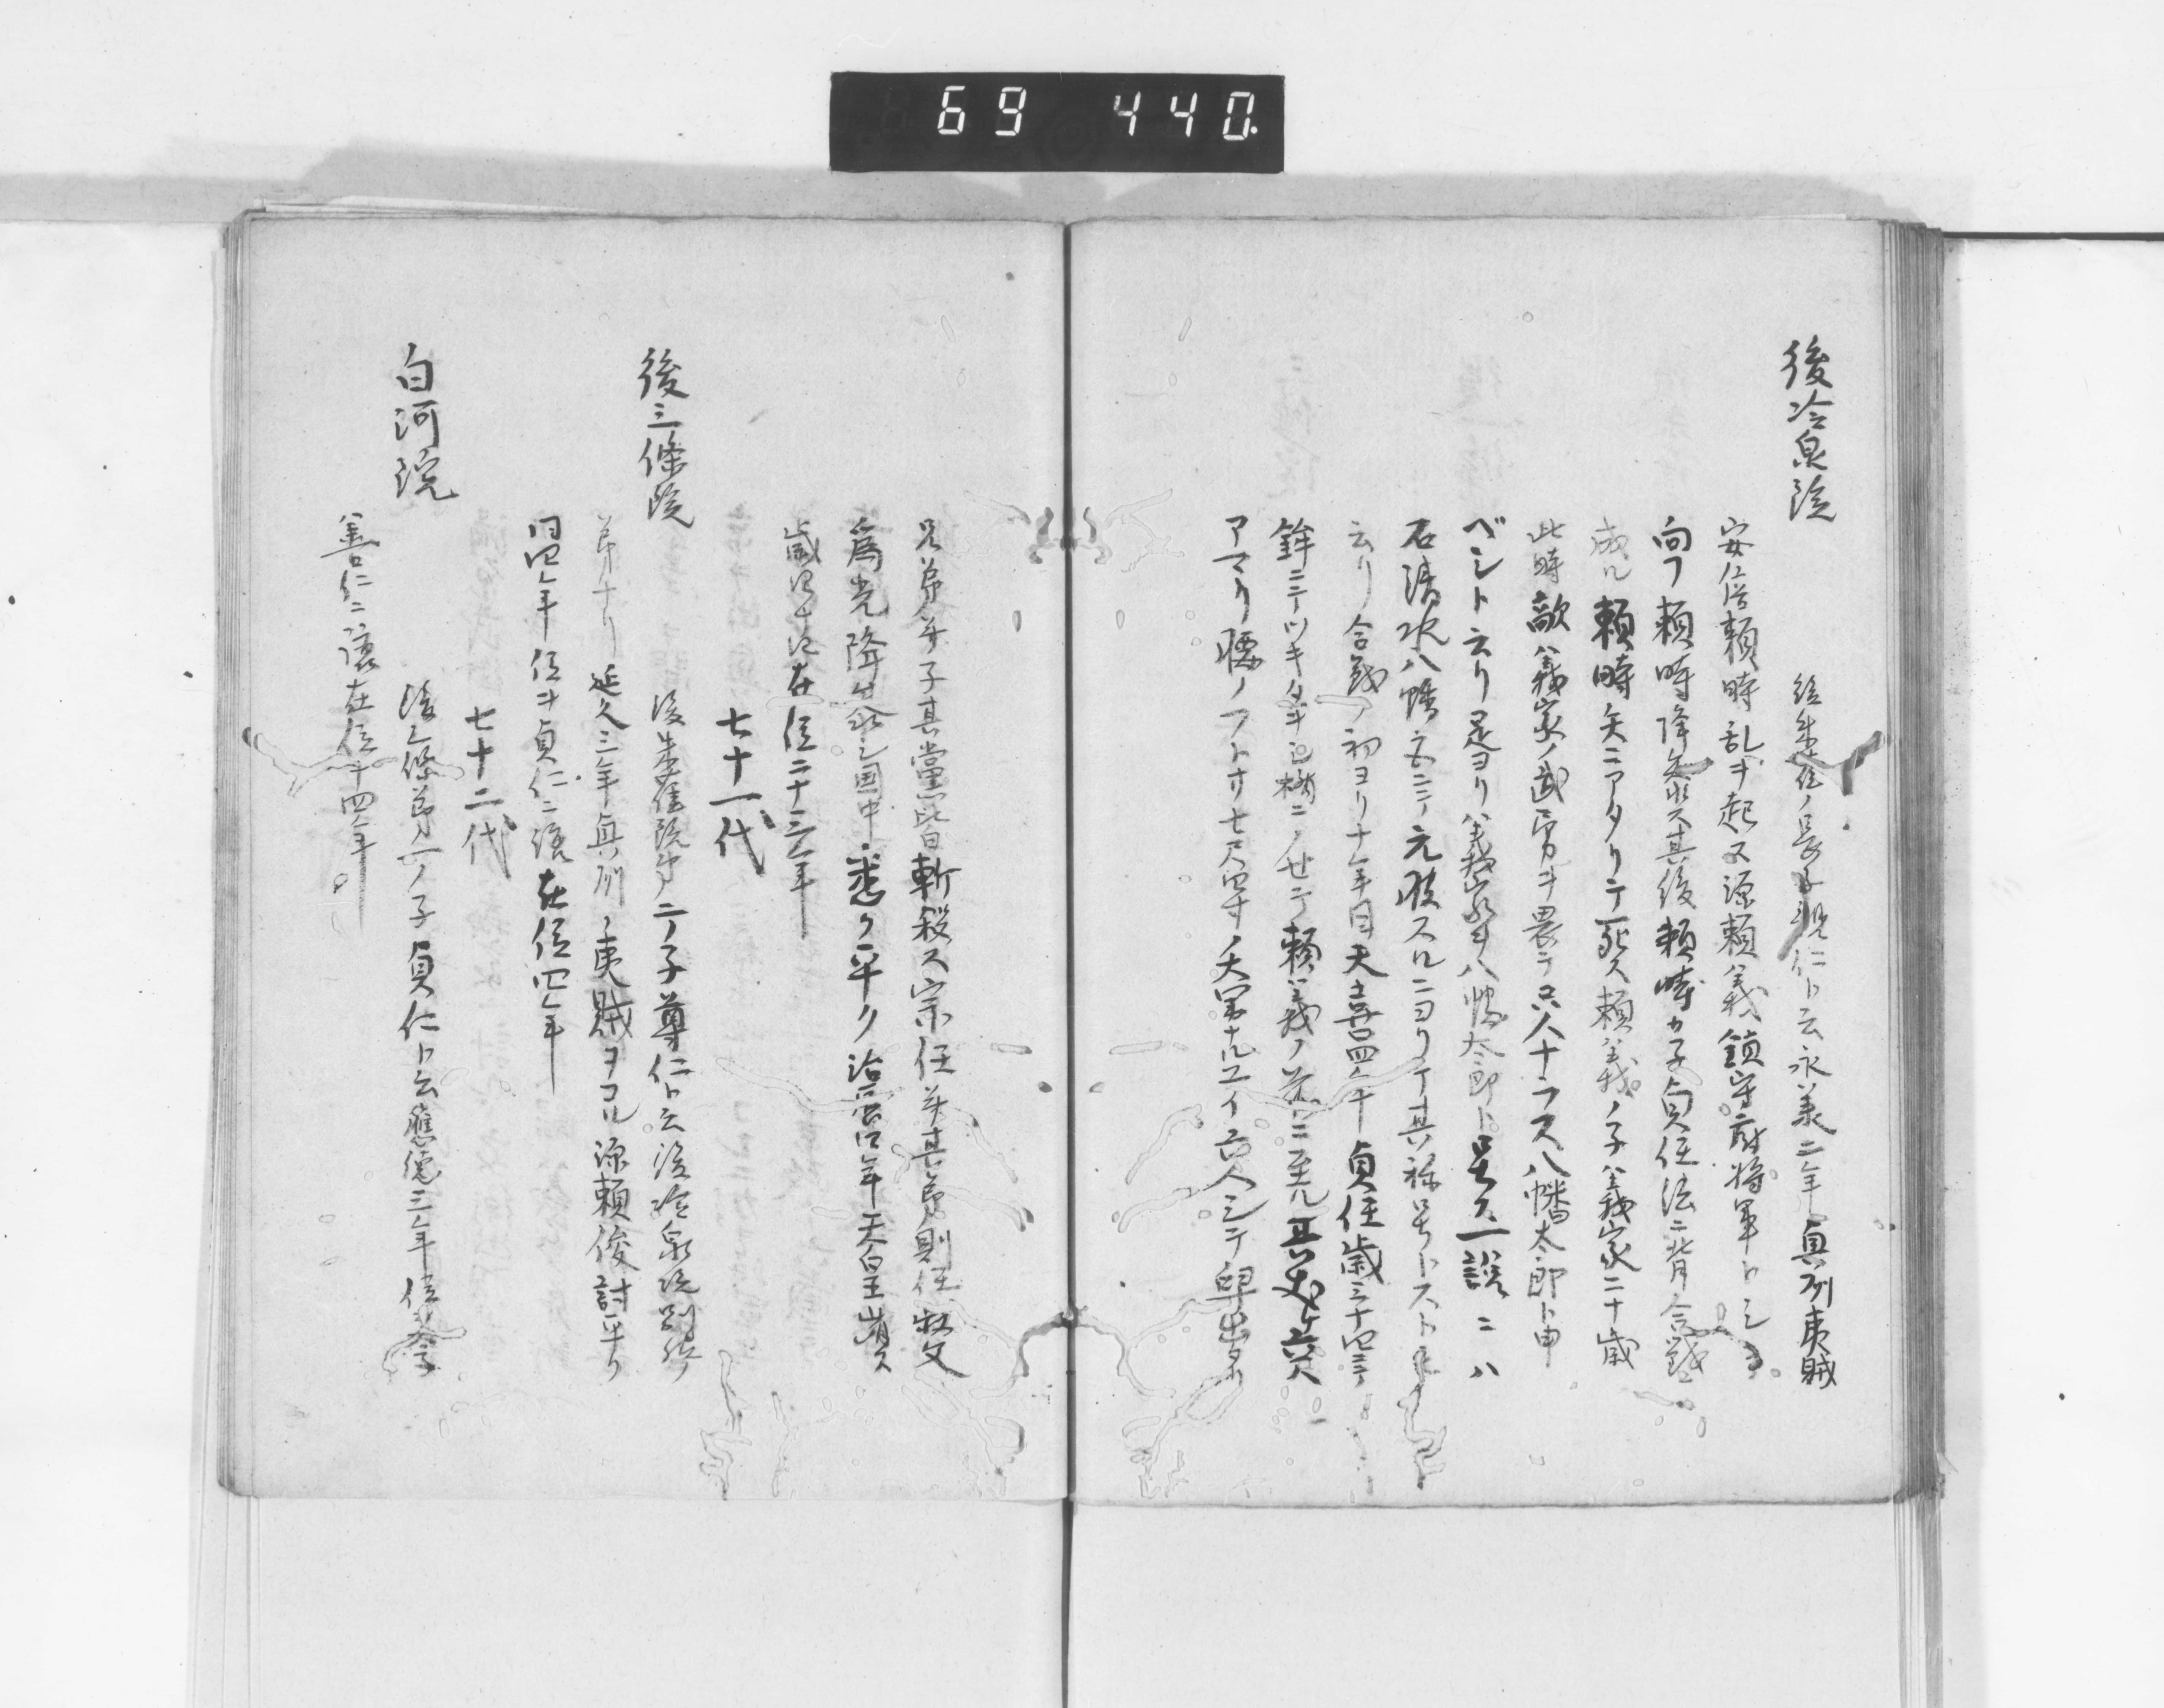 69 440
後冷泉院
後朱雀ノ長子親仁ト云永承二年奥州夷賊
安倍頼時乱ヲ起ス源頼義鎮守府将軍トシ
向フ頼時降参ス其後頼時カ子貞任法ニ背合戦
成ル頼時矢ニアタリテ死ス頼義ノ子義家二十歳
此時敵義家ノ武勇ヲ畏テ只人ナラス八幡太郎ト申
ベシト云リ是ヨリ義家ヲ八幡太郎ト号ス一説ニハ
石清水八幡宮ニテ元服スルニヨリテ其称号トスト
云リ合戦ノ初ヨリ十年目天喜四年貞任歳三十四ニテ
鉾ニテツキタヲシ楯ニノセテ頼義ノ前ニ至ル其長六尺
アマリ腰ノフトサ七尺四寸ノ大男ナルユイ六人シテ舁出
兄弟并子其党皆斬殺ス宗任并其弟則任
為光降出国中悉ク平ク治暦四年天皇崩ス
歳四十四在位二十三年
七十一代
後三條院
後朱雀院第二ノ子尊仁ト云後冷泉院別腹
弟ナリ延久三年奥州ノ夷賊ヲコル源頼俊討平リ
同四年位ヲ貞仁ニ譲在位四年
七十二代
白河院
後三條第一ノ子貞仁ト云應徳三年位ヲ
善仁ニ譲在位十四年